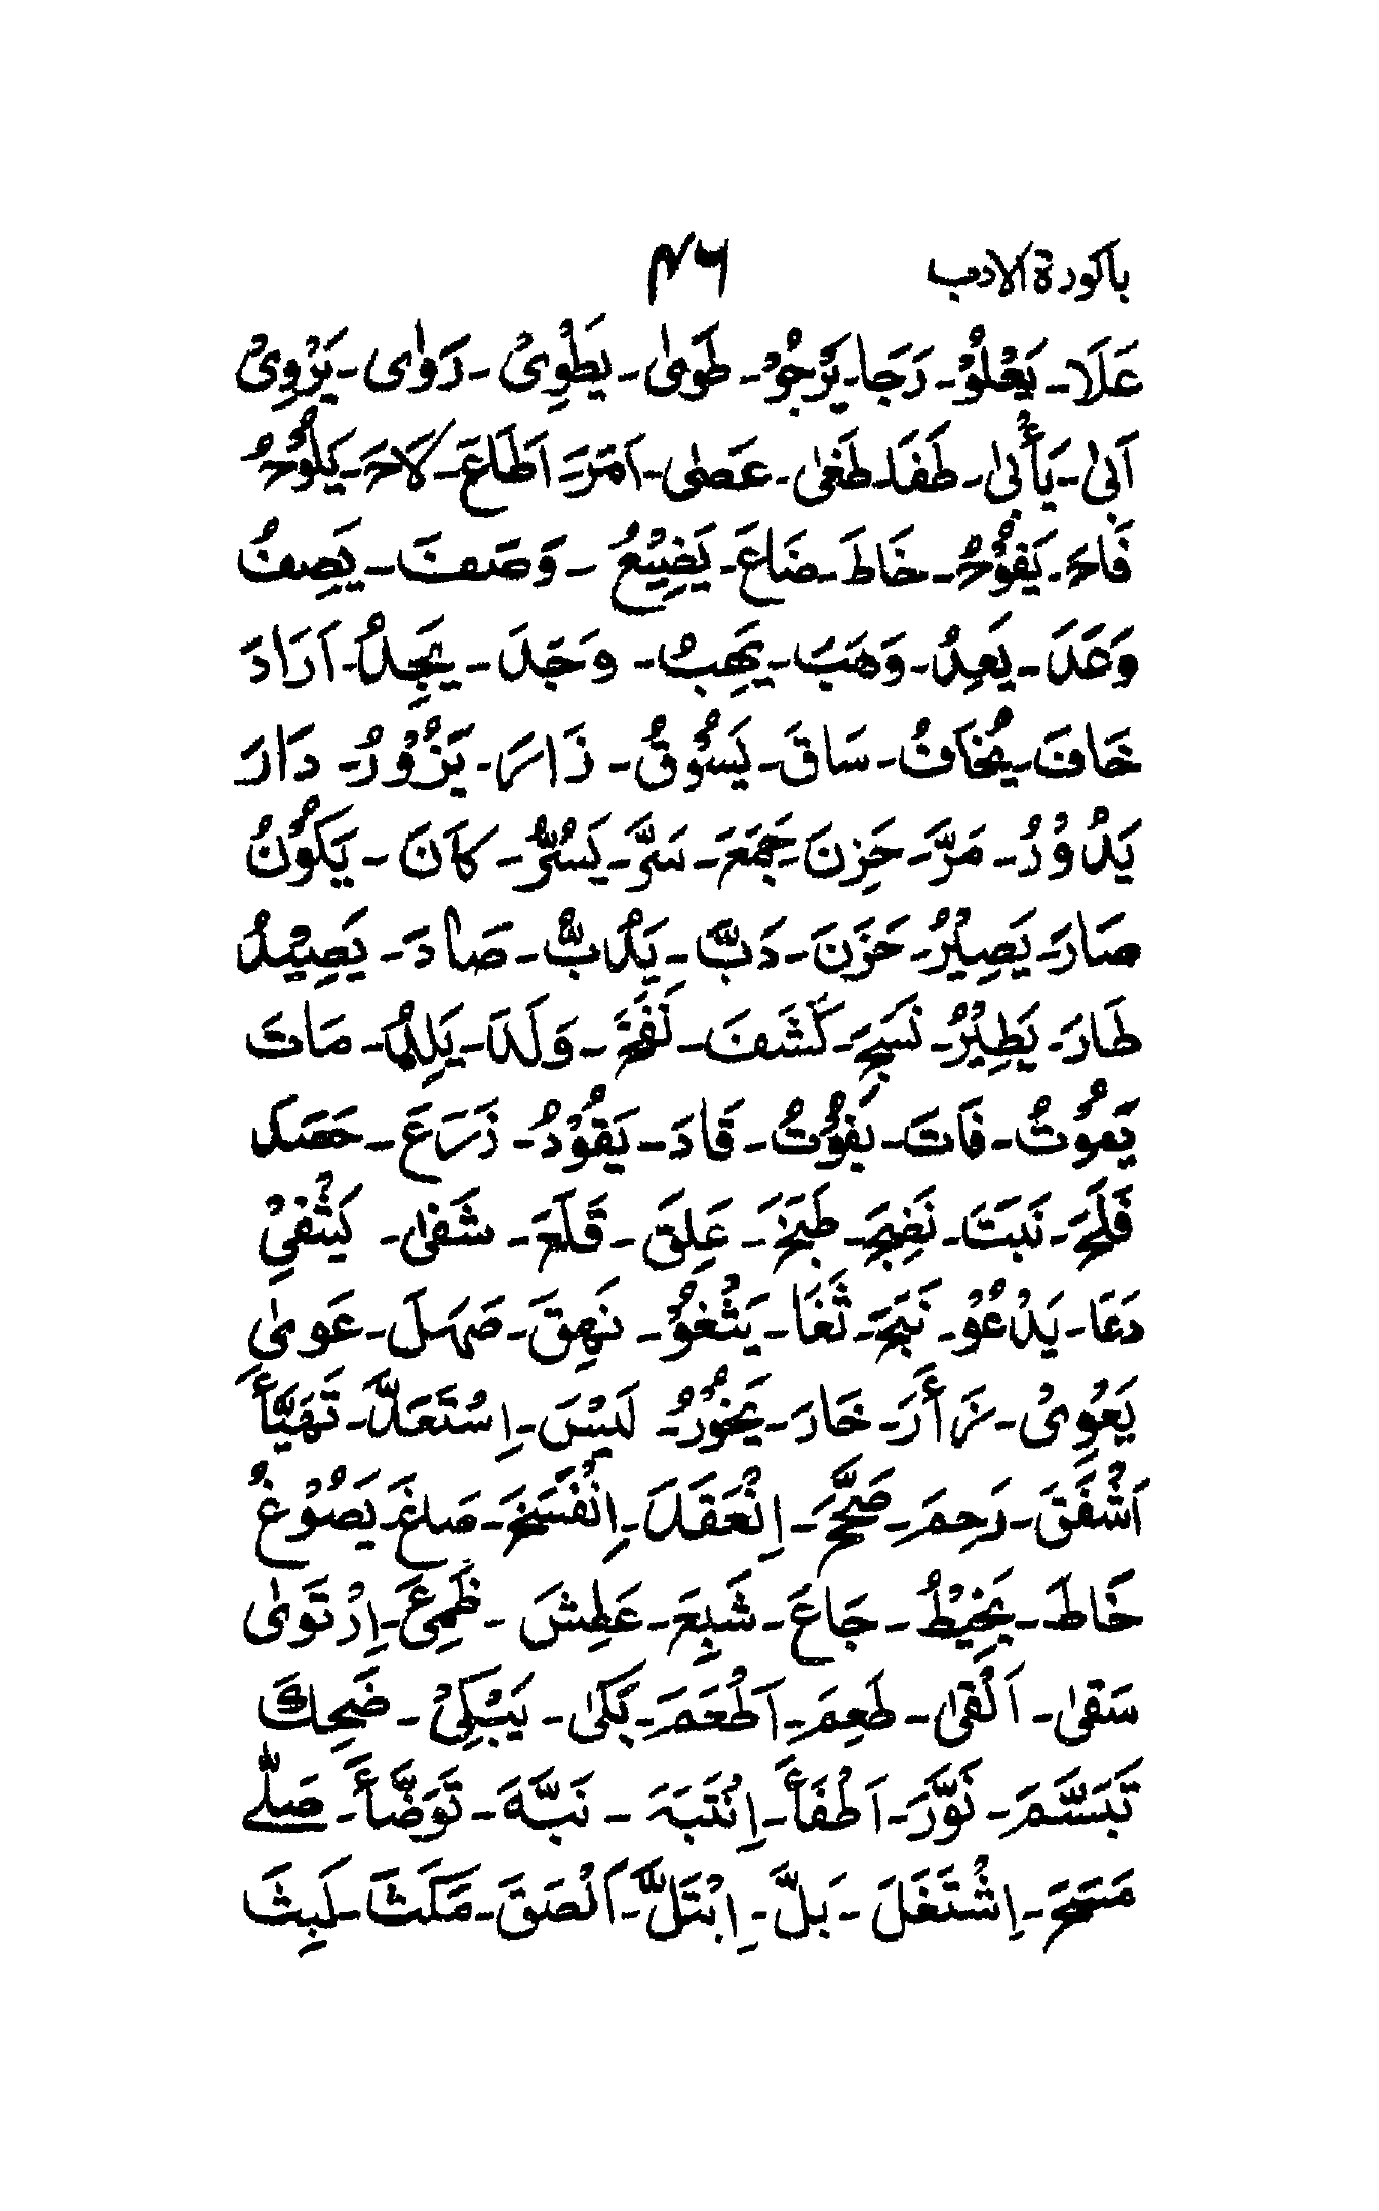 باكورة الادب ۴۶
عَلَا - يَعْلُوْ - رَجَا - يَرْجُوْ - طَوىٰ - يَطْوِىْ - رَوٰى - يَرْوِىْ
اَبىٰ - يَأْبىٰ - طَفَا - طَغىٰ - عَصىٰ - اَمَرَ - اَطَاعَ - لَاحَ - يَلُوْحُ
فَاحَ - يَفُوْحُ - خَاطَ - ضَاعَ - يَضِيْعُ - وَصَفَ - يَصِفُ
وَعَدَ - يَعِدُ - وَهَبَ - يَهِبُ - وَجَدَ - يَجِدُ - اَرَادَ
خَافَ - يَخَافُ - سَاقَ - يَسُوْقُ - زَارَ - يَزُوْرُ - دَارَ
يَدُوْرُ - مَرَّ - حَزِنَ - جَمَعَ - سَرَّ - يَسُرُّ - كَانَ - يَكُوْنُ
صَارَ - يَصِيْرُ - حَزَنَ - دَبَّ - يَدُبُّ - صَادَ - يَصِيْدُ
طَارَ - يَطِيْرُ - نَسَجَ - كَشَفَ - نَفَخَ - وَلَدَ - يَلِدُ - مَاتَ
يَمُوْتُ - فَاتَ - يَفُوْتُ - قَادَ - يَقُوْدُ - زَرَعَ - حَصَدَ
فَلَحَ - نَبَتَ - نَضِجَ - طَبَخَ - عَلِقَ - قَلَعَ - شَفىٰ - يَشْفِىْ
دَعَا - يَدْعُوْ - نَبَحَ - ثَغَا - يَثْغُوْ - نَهِقَ - صَهَلَ - عَوىٰ
يَعْوِىْ - زَأَرَ - خَارَ - يَخُوْرُ - لَيْسَ - اِسْتَعَدَّ - تَهَيَّأَ
اَشْفَقَ - رَحِمَ - صَحَّحَ - اِنْعَقَدَ - اِنْفَسَخَ - صَاغَ - يَصُوْغُ
خَاطَ - يَخِيْطُ - جَاعَ - شَبِعَ - عَطِشَ - ظَمِئَ - اِرْتَوىٰ
سَقىٰ - اَلْقىٰ - طَعِمَ - اَطْعَمَ - بَكىٰ - يَبْكِىْ - ضَحِكَ
تَبَسَّمَ - نَوَّرَ - اَطْفَأَ - اِنْتَبَهَ - نَبَّهَ - تَوَضَّأَ - صَلّٰے
مَسَحَ - اِشْتَغَلَ - بَلَّ - اِبْتَلَّ - اَلْصَقَ - مَكَثَ - لَبِثَ